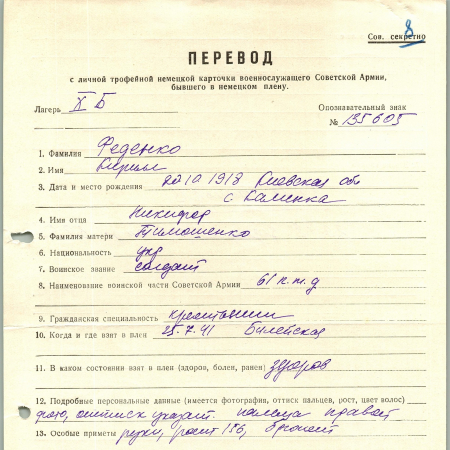 8
Сов. секретно
ПЕРЕВОД
с личной трофейной немецкой карточки военнослужащего Советской Армии,
бывшего в немецком плену.
Лагерь X Б
Опознавательный знак
№ 135605
1. Фамилия Феденко
2. Имя Кирилл
3. Дата и место рождения 20 10 1918 Киевская обл
с. Каменка
4. Имя отца Никифор
5. Фамилия матери Тимошенко
6. Национальность укр
7. Воинское звание солдат
8. Наименование воинской части Советской Армии 61 п.т.д
9. Гражданская специальность крестьянин
10. Когда и где взят в плен 25.7.41
11. В каком состоянии взят в плен (здоров, болен, ранен) здоров
12. Подробные персональные данные (имеется фотография, оттиск пальцев, рост, цвет волос)
фото, оттиск указат. пальца правой
13. Особые приметы руки, рост 156, брюнет